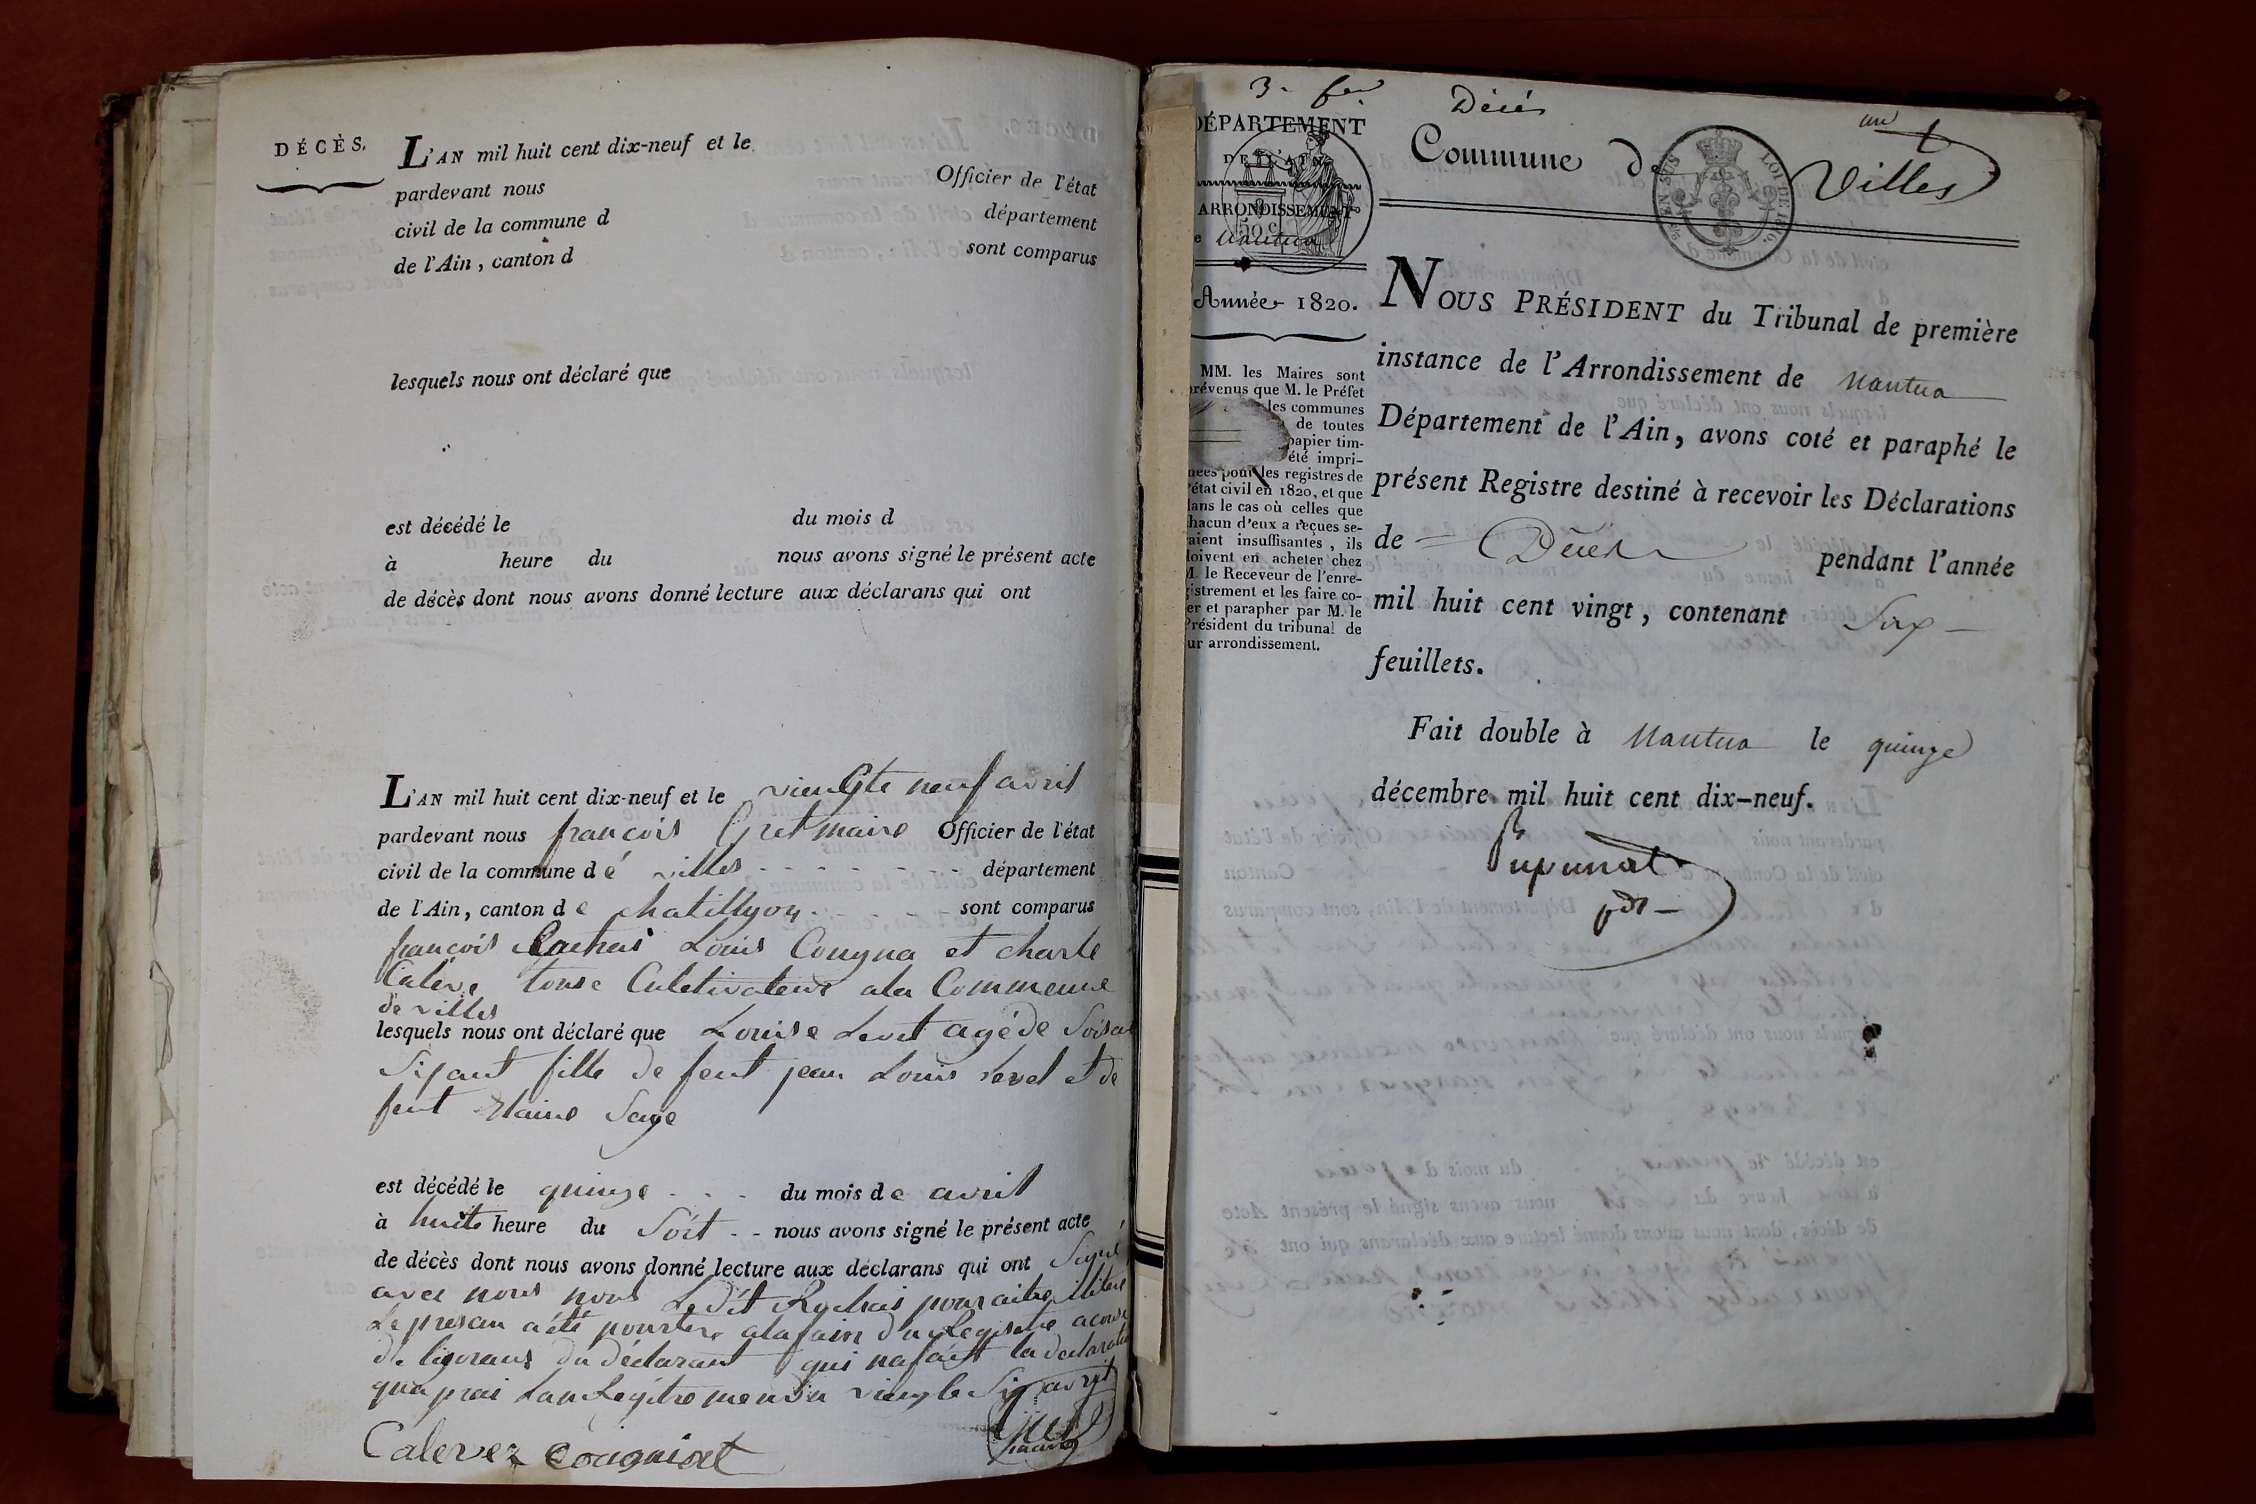 DÉCÈS.
L'AN mil huit cent dix-neuf et le
pardevant nous Officier de l'état
civil de la commune d département
de l'Ain, canton d sont comparus
lesquels nous ont déclaré que
est décédé le du mois d
à heure du nous avons signé le présent acte
de décès dont nous avons donné lecture aux déclarans qui ont
L'AN mil huit cent dix-neuf et le vienGte neuf avril
pardevant nous francois Gret maire Officier de l'état
civil de la commune dé villes département
de l'Ain, canton de chatillyon sont comparus
francois Louis Cougna et charle
tousc Culetivateur ala Commeune
de villes
lesquels nous ont déclaré que Louise Levet agé de
Sisant fille de feut jean Louis Levet et de
feut Saye
est décédé le quinze du mois de avril
à huite heure du Soit nous avons signé le présent acte
de décès dont nous avons donné lecture aux déclarans qui ont Signé
avec nous nous Le dit pour aitre
Le presan aété alafain du Registre
du déclarant qui nafait la declaration
Calevez Cougniat
3. Décés un
DÉPARTEMENT
DE L'AIN
ARRONDISSEMENT
50 c
de Nantua
Année 1820.
Commune de Villes
SEN SUS
LOI DE 18
MM. les Maires sont
prévenus que M. le Préfet
les communes
de toutes
papier tim-
été impri-
mées pour les registres de
l'état civil en 1820, et que
dans le cas où celles que
chacun d'eux a reçues se-
raient insuffisantes, ils
doivent en acheter chez
M. le Receveur de l'enre-
gistrement et les faire co-
ter et parapher par M. le
Président du tribunal de
leur arrondissement.
NOUS PRÉSIDENT du Tribunal de première
instance de l'Arrondissement de Nantua
Département de l'Ain, avons coté et paraphé le
présent Registre destiné à recevoir les Déclarations
de Décès pendant l'année
mil huit cent vingt, contenant Six
feuillets.
Fait double à Nantua le quinze
décembre mil huit cent dix-neuf.